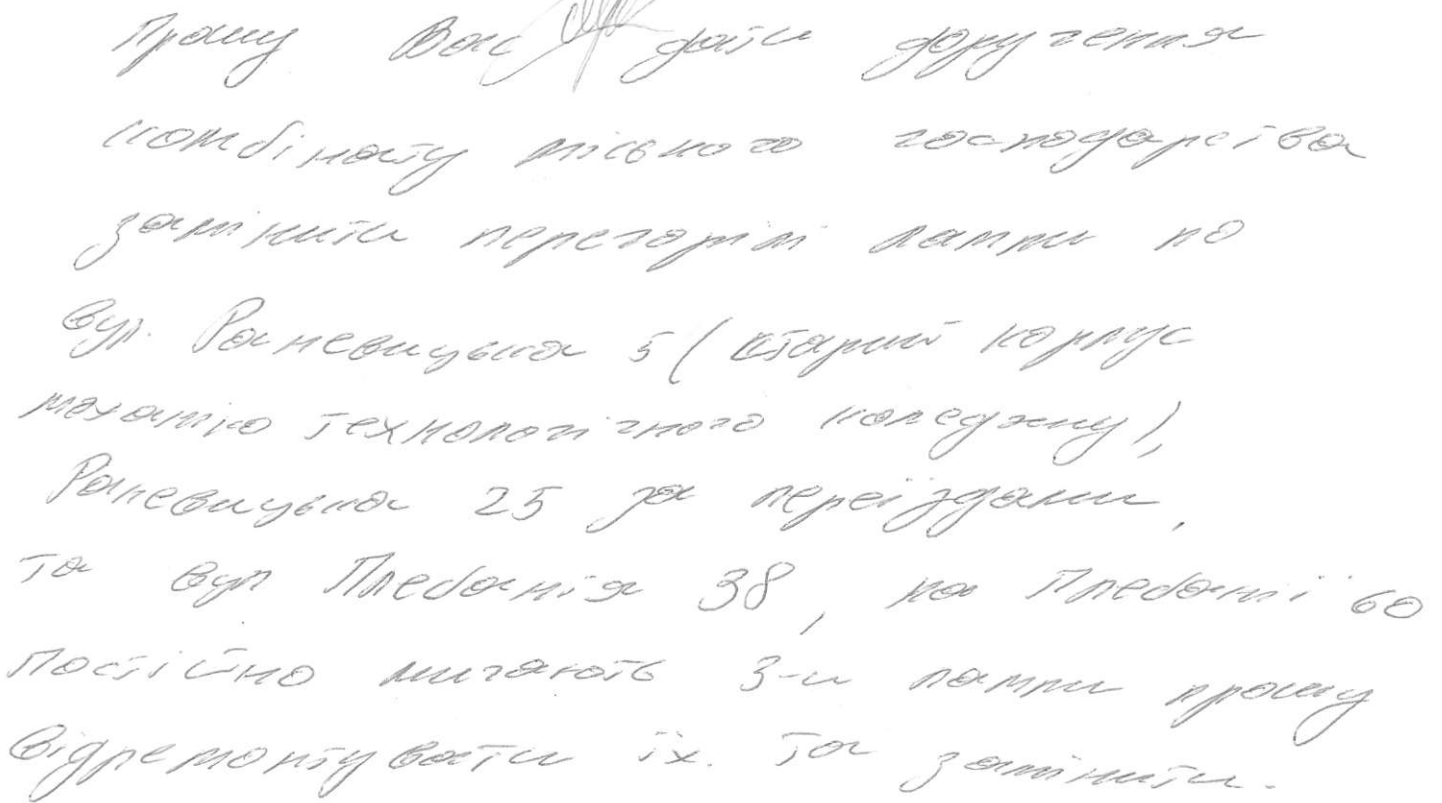 Прошу Вас дати доручення
комбінату міського господарства
замінити перегорілі лампи по
вул. Раневицька 5 (старий корпус
механіко технологічного коледжу),
Раневицька 25 за переїздами,
та вул Плебанія 38, на Плебанії 60
постійно мигають 3-и лампи прошу
відремонтувати їх. та замінити.